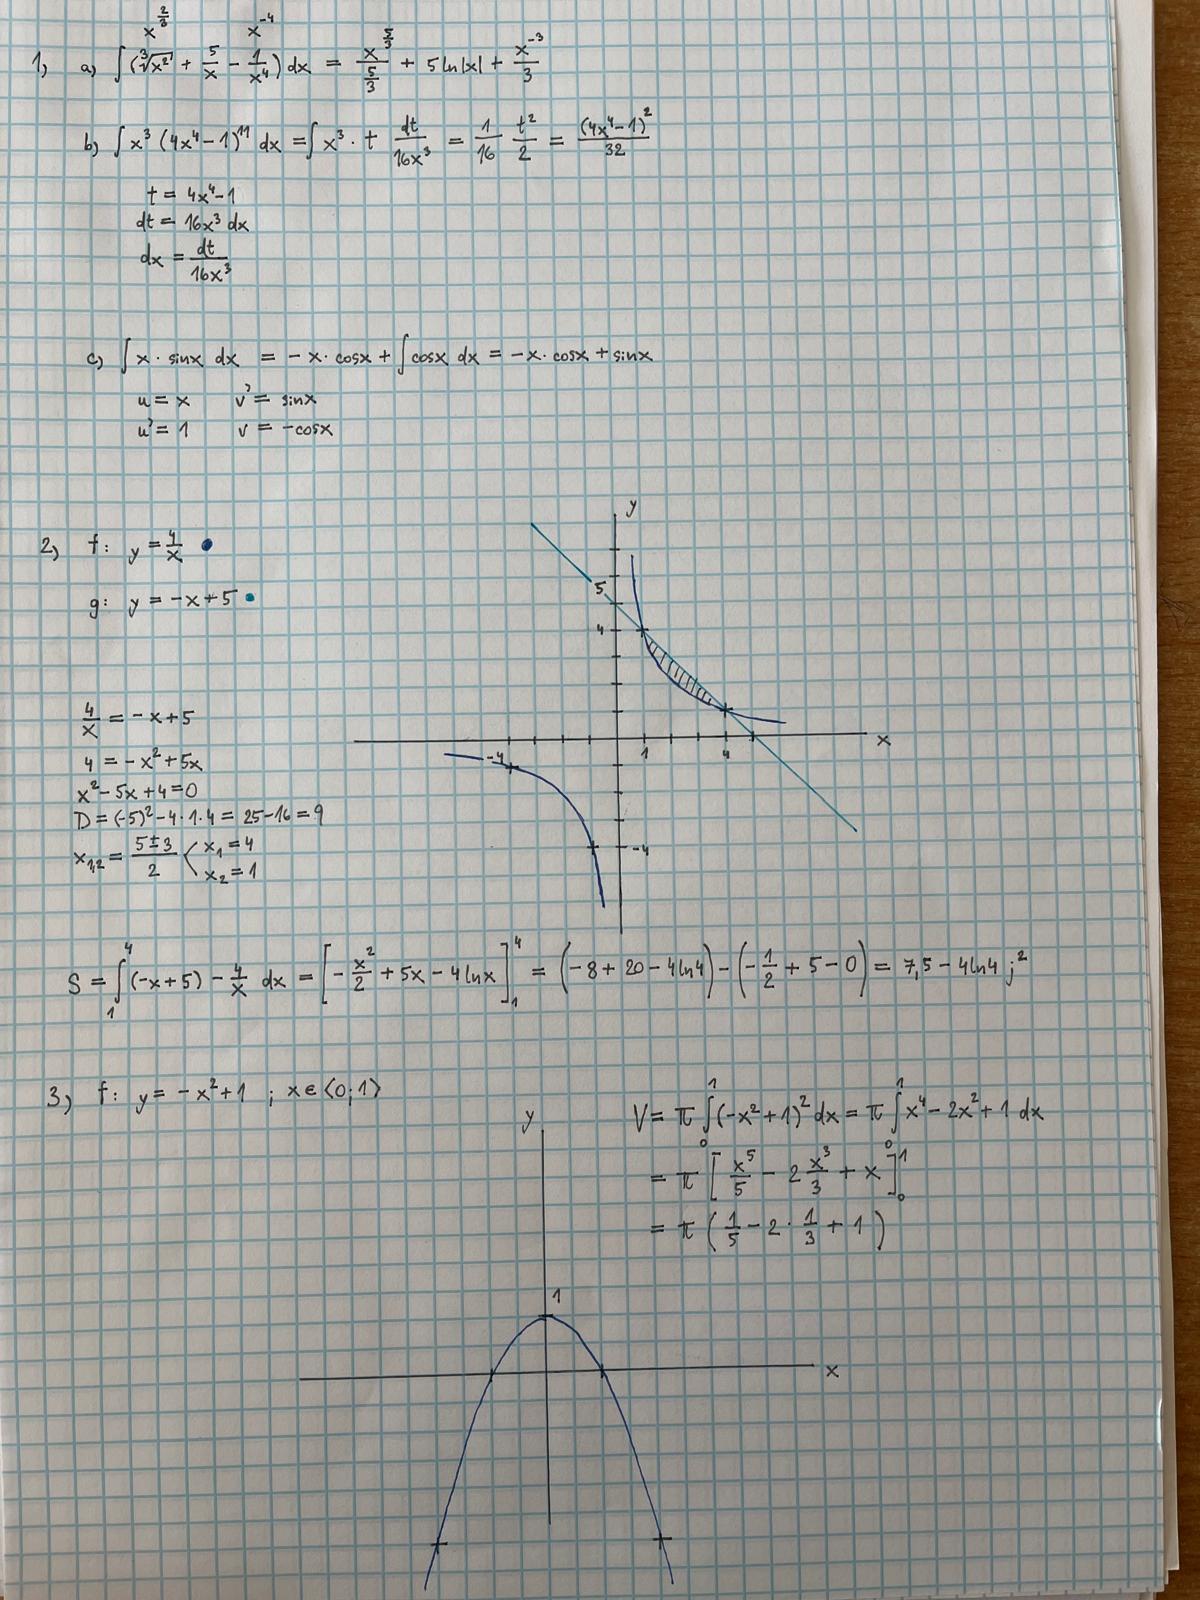 x^(2/3) x^(-4)
1, a) ∫(∛x² + 5/x - 1/x⁴) dx = x^(5/3)/(5/3) + 5 ln|x| + x^(-3)/3
b) ∫ x³ (4x⁴-1)¹¹ dx = ∫ x³ · t dt/16x³ = 1/16 t²/2 = (4x⁴-1)²/32
t = 4x⁴-1
dt = 16x³ dx
dx = dt/16x³
c) ∫ x · sinx dx = - x · cosx + ∫ cosx dx = -x · cosx + sinx
u = x v' = sinx
u' = 1 v = -cosx
2, f: y = 4/x
g: y = -x+5
y
5
4
x
-4
1
4
-4
4/x = -x+5
4 = -x² + 5x
x² - 5x + 4 = 0
D = (-5)² - 4·1·4 = 25-16 = 9
x₁,₂ = (5±3)/2 < x₁ = 4
x₂ = 1
S = ∫₁⁴ (-x+5) - 4/x dx = [-x²/2 + 5x - 4 lnx]₁⁴ = (-8 + 20 - 4ln4) - (-1/2 + 5 - 0) = 7,5 - 4ln4 j²
3, f: y = -x²+1 ; x ∈ ⟨0;1⟩
y
1
x
V = π ∫₀¹ (-x²+1)² dx = π ∫₀¹ x⁴ - 2x² + 1 dx
= π [x⁵/5 - 2 x³/3 + x]₀¹
= π (1/5 - 2 · 1/3 + 1)